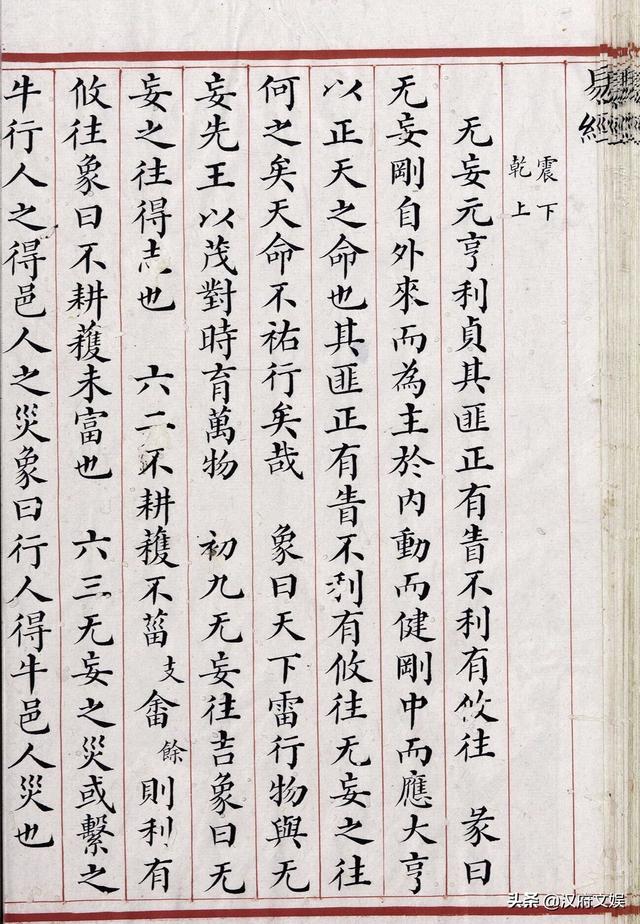 易經
震下
乾上
无妄元亨利貞其匪正有眚不利有攸往 彖曰
无妄剛自外來而為主於內動而健剛中而應大亨
以正天之命也其匪正有眚不利有攸往无妄之往
何之矣天命不祐行矣哉 象曰天下雷行物與无
妄先王以茂對時育萬物 初九无妄往吉象曰无
妄之往得志也 六二不耕穫不菑支畬餘則利有
攸往象曰不耕穫未富也 六三无妄之災或繫之
牛行人之得邑人之災象曰行人得牛邑人災也
头条 @汉府文娱